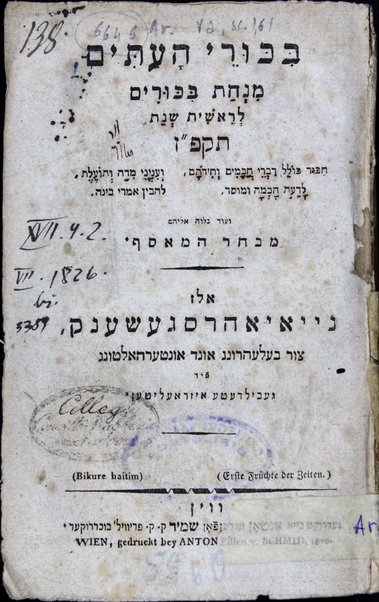 138.
6646 Ar. VA, sc, 161
בִּכּוּרֵי הָעִתִּים
מִנְחַת בִּכּוּרִים
לְרֵאשִׁית שְׁנַת
תקפ״ז
חִבּוּר כּוֹלֵל דִּבְרֵי חֲכָמִים וְחִידֹתָם, וְעִנְיָנֵי מִדָּה וְתוֹעֶלֶת,
לָדַעַת חָכְמָה וּמוּסָר, לְהָבִין אִמְרֵי בִינָה.
ועוד נלוה אליהם
מבחר המאסף.
XVII. 4. 2.
VII. 1826.
3389
אלז
נייאיאהרסגעשענק,
צור בעלעהרונג אונד אונטערהאלטונג
פיר
געבילדעטע איזראעליטען.
Colleg
(Bikure haitim) (Erste Früchte der Zeiten.)
ווין
געדרוקט בייא אנטאן עדלען פֿאָן שמיד ק. ק. פריוויל׳ בוכדרוקער.
WIEN, gedruckt bey ANTON Edlen v. SCHMID, 1826.
Ar
5960